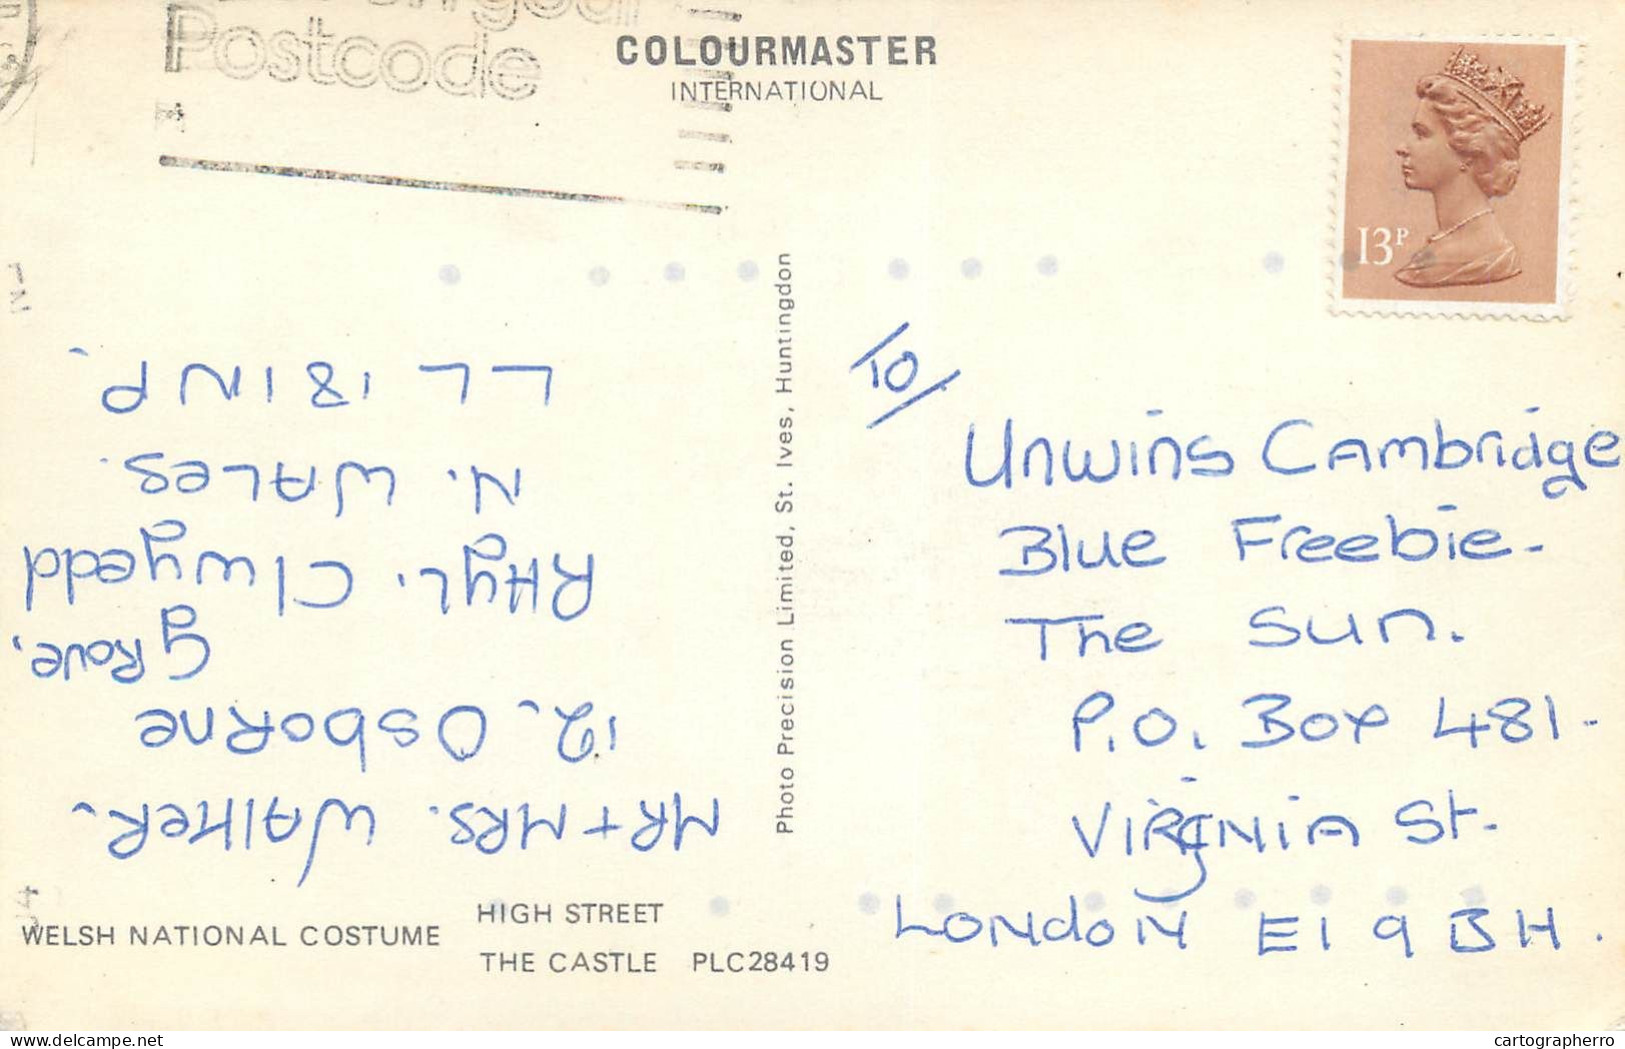 on your
Postcode
COLOURMASTER
INTERNATIONAL
13P
MR + MRS. WALKER.
12. OSBORNE
GROVE,
RHYL. Clwyedd
N. WALES.
LL 18 1NP.
Photo Precision Limited, St. Ives, Huntingdon
TO/
Unwins Cambridge
Blue Freebie-
The Sun.
P.O. Box 481-
VIRGINIA St.
LONDON E1 9BH.
WELSH NATIONAL COSTUME
HIGH STREET
THE CASTLE PLC28419
cartographerro